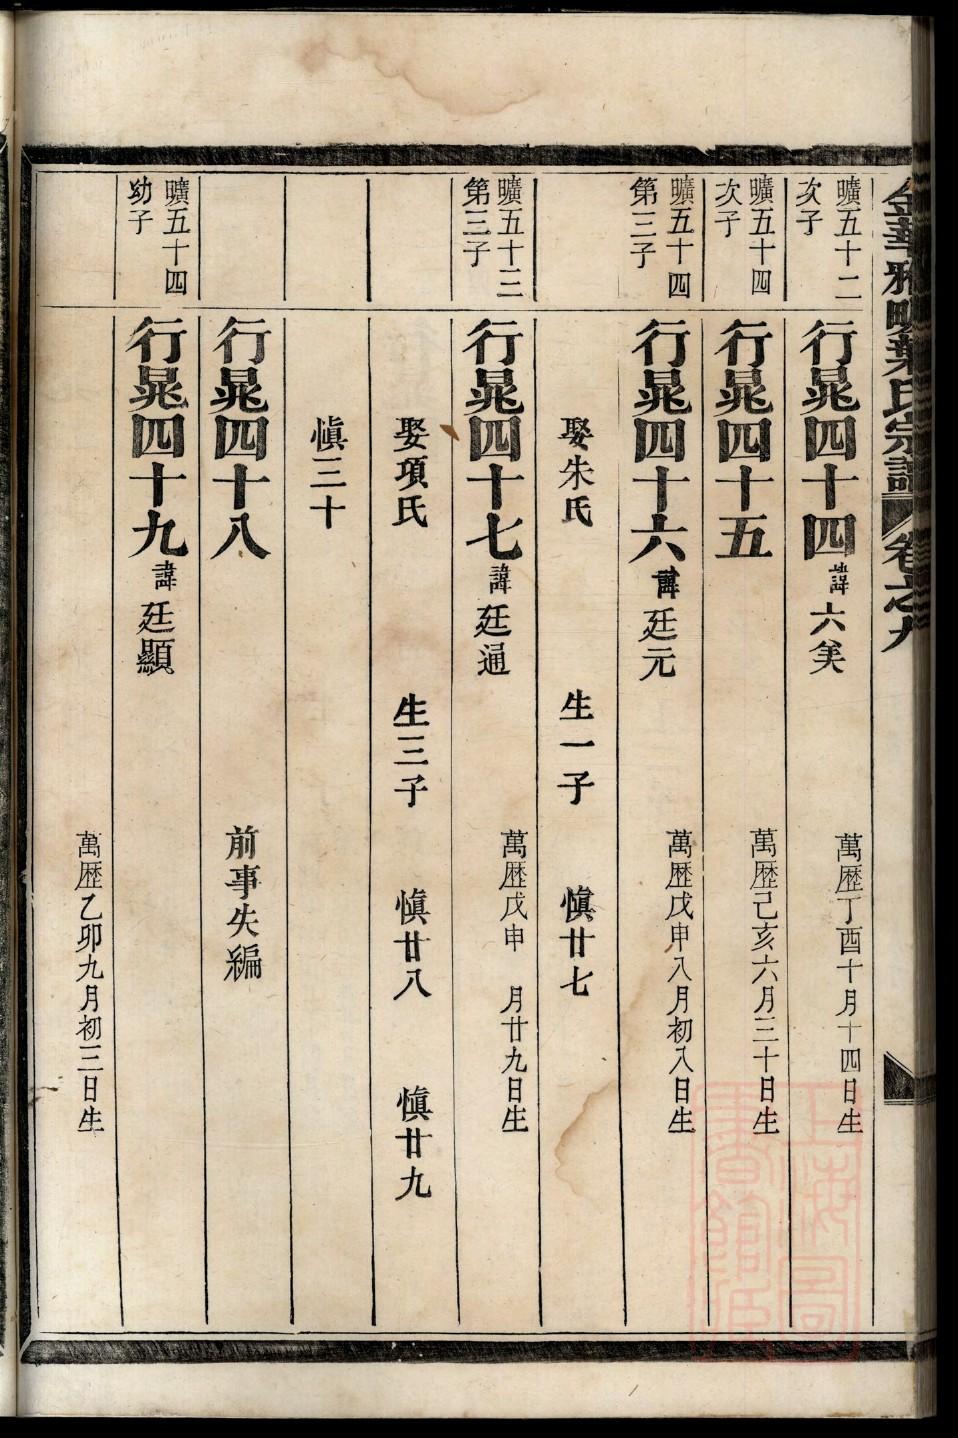 金華雅畈葉氏宗譜 卷之九
曠五十二
次子
行晁四十四 諱六美 萬歴丁酉十月十四日生
曠五十四
次子
行晁四十五 萬歴己亥六月三十日生
曠五十四
第三子
行晁四十六 諱廷元 萬歴戊申八月初八日生
娶朱氏 生一子 愼廿七
曠五十三
第三子
行晁四十七 諱廷通 萬歴戊申 月廿九日生
娶項氏 生三子 愼廿八 愼廿九
愼三十
行晁四十八 前事失編
曠五十四
幼子
行晁四十九 諱廷顯
萬歴乙卯九月初三日生
上海圖
書館藏